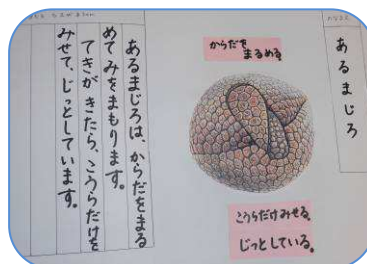 あるまじろ
からだを
まるめる。
こうらだけみせる。
じっとしている。
あるまじろは、からだをまる
めてみをまもります。
てきがきたら、こうらだけを
みせて、じっとしています。